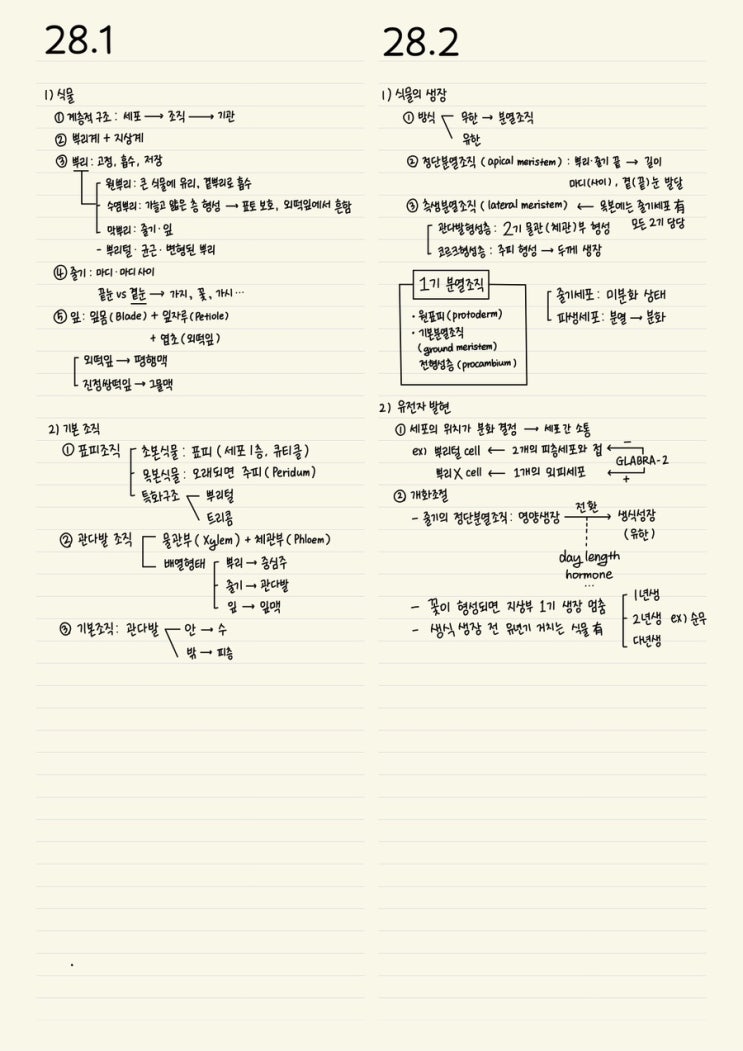 28.1
1) 식물
① 계층적 구조 : 세포 → 조직 → 기관
② 뿌리계 + 지상계
③ 뿌리 : 고정, 흡수, 저장
원뿌리 : 큰 식물에 유리, 곁뿌리로 흡수
수염뿌리 : 가늘고 얇은 층 형성 → 표토 보호, 외떡잎에서 흔함
막뿌리 : 줄기 · 잎
- 뿌리털 · 균근 · 변형된 뿌리
④ 줄기 : 마디 · 마디 사이
끝눈 vs 곁눈 → 가지, 꽃, 가시 ...
⑤ 잎 : 잎몸 (Blade) + 잎자루 (Petiole)
+ 엽초 (외떡잎)
외떡잎 → 평행맥
진정쌍떡잎 → 그물맥
2) 기본 조직
① 표피조직
초본식물 : 표피 (세포 1층, 큐티클)
목본식물 : 오래되면 주피 (Peridum)
특화구조
뿌리털
트리콤
② 관다발 조직
물관부 (Xylem) + 체관부 (Phloem)
배열형태
뿌리 → 중심주
줄기 → 관다발
잎 → 잎맥
③ 기본조직 : 관다발
안 → 수
밖 → 피층
28.2
1) 식물의 생장
① 방식
유한 → 분열조직
유한
② 정단분열조직 (apical meristem) : 뿌리·줄기 끝 → 길이
마디(사이), 곁(끝)눈 발달
③ 측생분열조직 (lateral meristem) ← 목본에는 줄기세포 有
모든 2기 담당
관다발형성층 : 2기 물관(체관)부 형성
코르크형성층 : 주피 형성 → 두께 생장
1기 분열조직
· 원표피 (protoderm)
· 기본분열조직
(ground meristem)
전형성층 (procambium)
줄기세포 : 미분화 상태
파생세포 : 분열 → 분화
2) 유전자 발현
① 세포의 위치가 분화 결정 → 세포간 소통
ex) 뿌리털 cell ← 2개의 피층세포와 접 ← −
GLABRA-2
뿌리 X cell ← 1개의 외피세포 ← +
② 개화조절
- 줄기의 정단분열조직 : 영양생장 → 생식성장
전환
(유한)
day length
hormone
...
- 꽃이 형성되면 지상부 1기 생장 멈춤
- 생식 생장 전 유년기 거치는 식물 有
1년생
2년생 ex) 순무
다년생